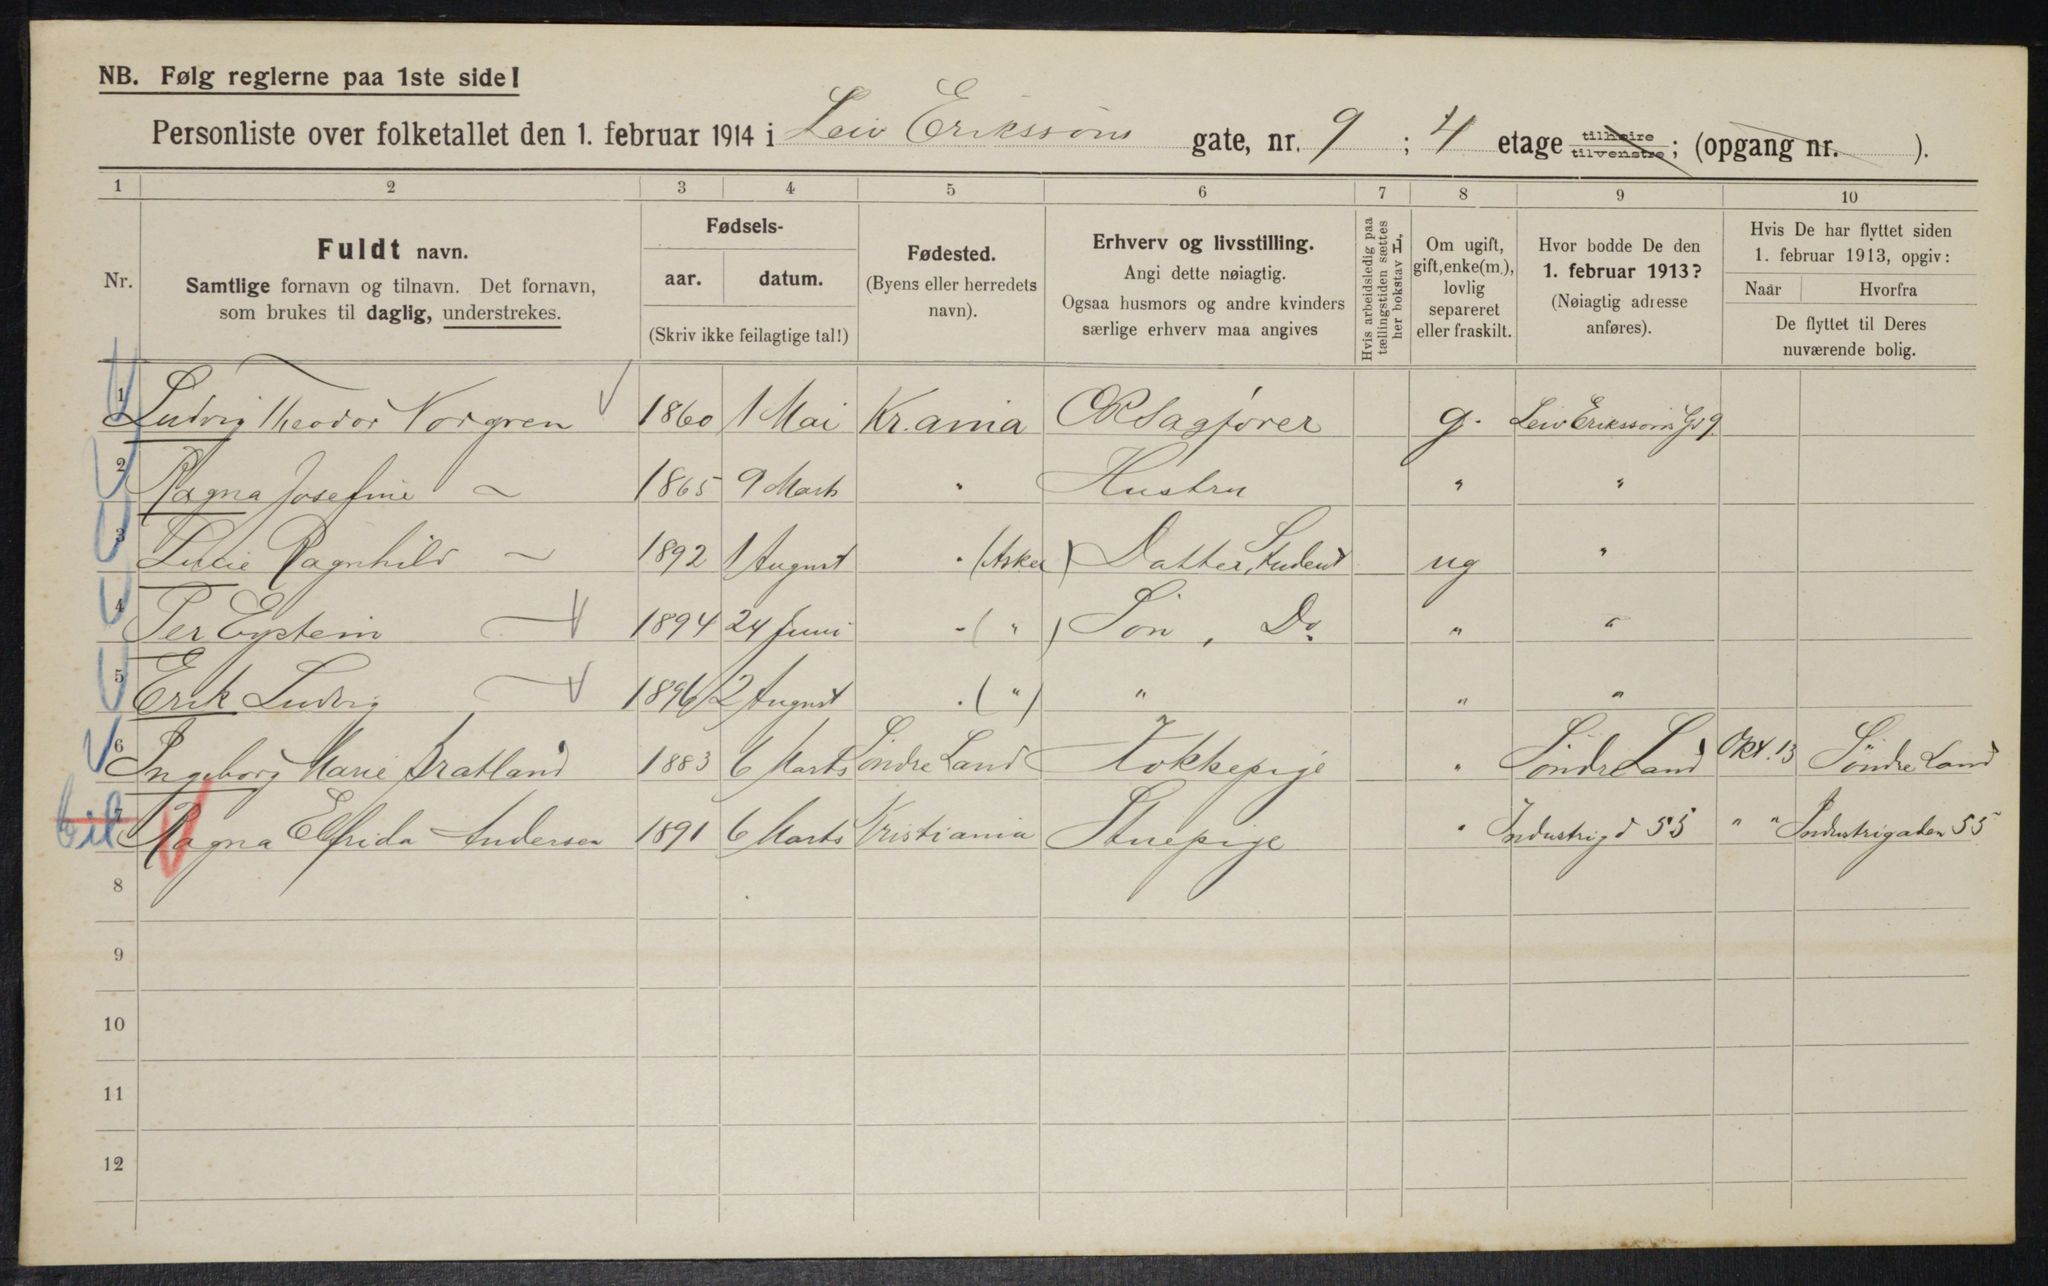 NB. Følg reglerne paa 1ste side!
Personliste over folketallet den 1. februar 1914 i Leiv Erikssøns gate, nr. 9 ; 4 etage tilhøire tilvenstre ; (opgang nr. ).
1 2 3 4 5 6 7 8 9 10
Nr.
Fuldt navn.
Samtlige fornavn og tilnavn. Det fornavn,
som brukes til daglig, understrekes.
Fødsels-
aar. datum.
(Skriv ikke feilagtige tal!)
Fødested.
(Byens eller herredets
navn).
Erhverv og livsstilling.
Angi dette nøiagtig.
Ogsaa husmors og andre kvinders
særlige erhverv maa angives
Hvis arbeidsledig paa
tællingstiden sættes
her bokstav L,
Om ugift,
gift, enke(m.),
lovlig
separeret
eller fraskilt.
Hvor bodde De den
1. februar 1913?
(Nøiagtig adresse
anføres).
Hvis De har flyttet siden
1. februar 1913, opgiv:
Naar Hvorfra
De flyttet til Deres
nuværende bolig.
1 Ludvig Theodor Norgren 1860 1 Mai Kr.ania ORSagfører g. Leiv Erikssøns Gd 9.
2 Ragna Josefine ~ 1865 9 Marts " Hustru " "
3 Lucie Ragnhild ~ 1892 1 August " (Asker) Datter, Student ug "
4 Per Eystein ~ 1894 24 Juni " ( " ) Søn, Do " "
5 Erik Ludvig ~ 1896 2 August " ( " ) " " "
6 Ingeborg Marie Bratland 1883 6 Marts Søndre Land Kokkepige " Søndre Land Okt. 13 Søndre Land
bil 7 Ragna Elfrida Andersen 1891 6 Marts Kristiania Stuepige " Industrigd 55 " " Industrigaden 55
8
9
10
11
12